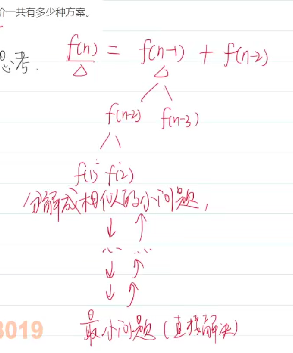 阶一共有多少种方案。
思考. f(n) = f(n-1) + f(n-2)
f(n-2) f(n-3)
f(1) f(2)
分解成相似的小问题,
最小问题(直接解决)
3019